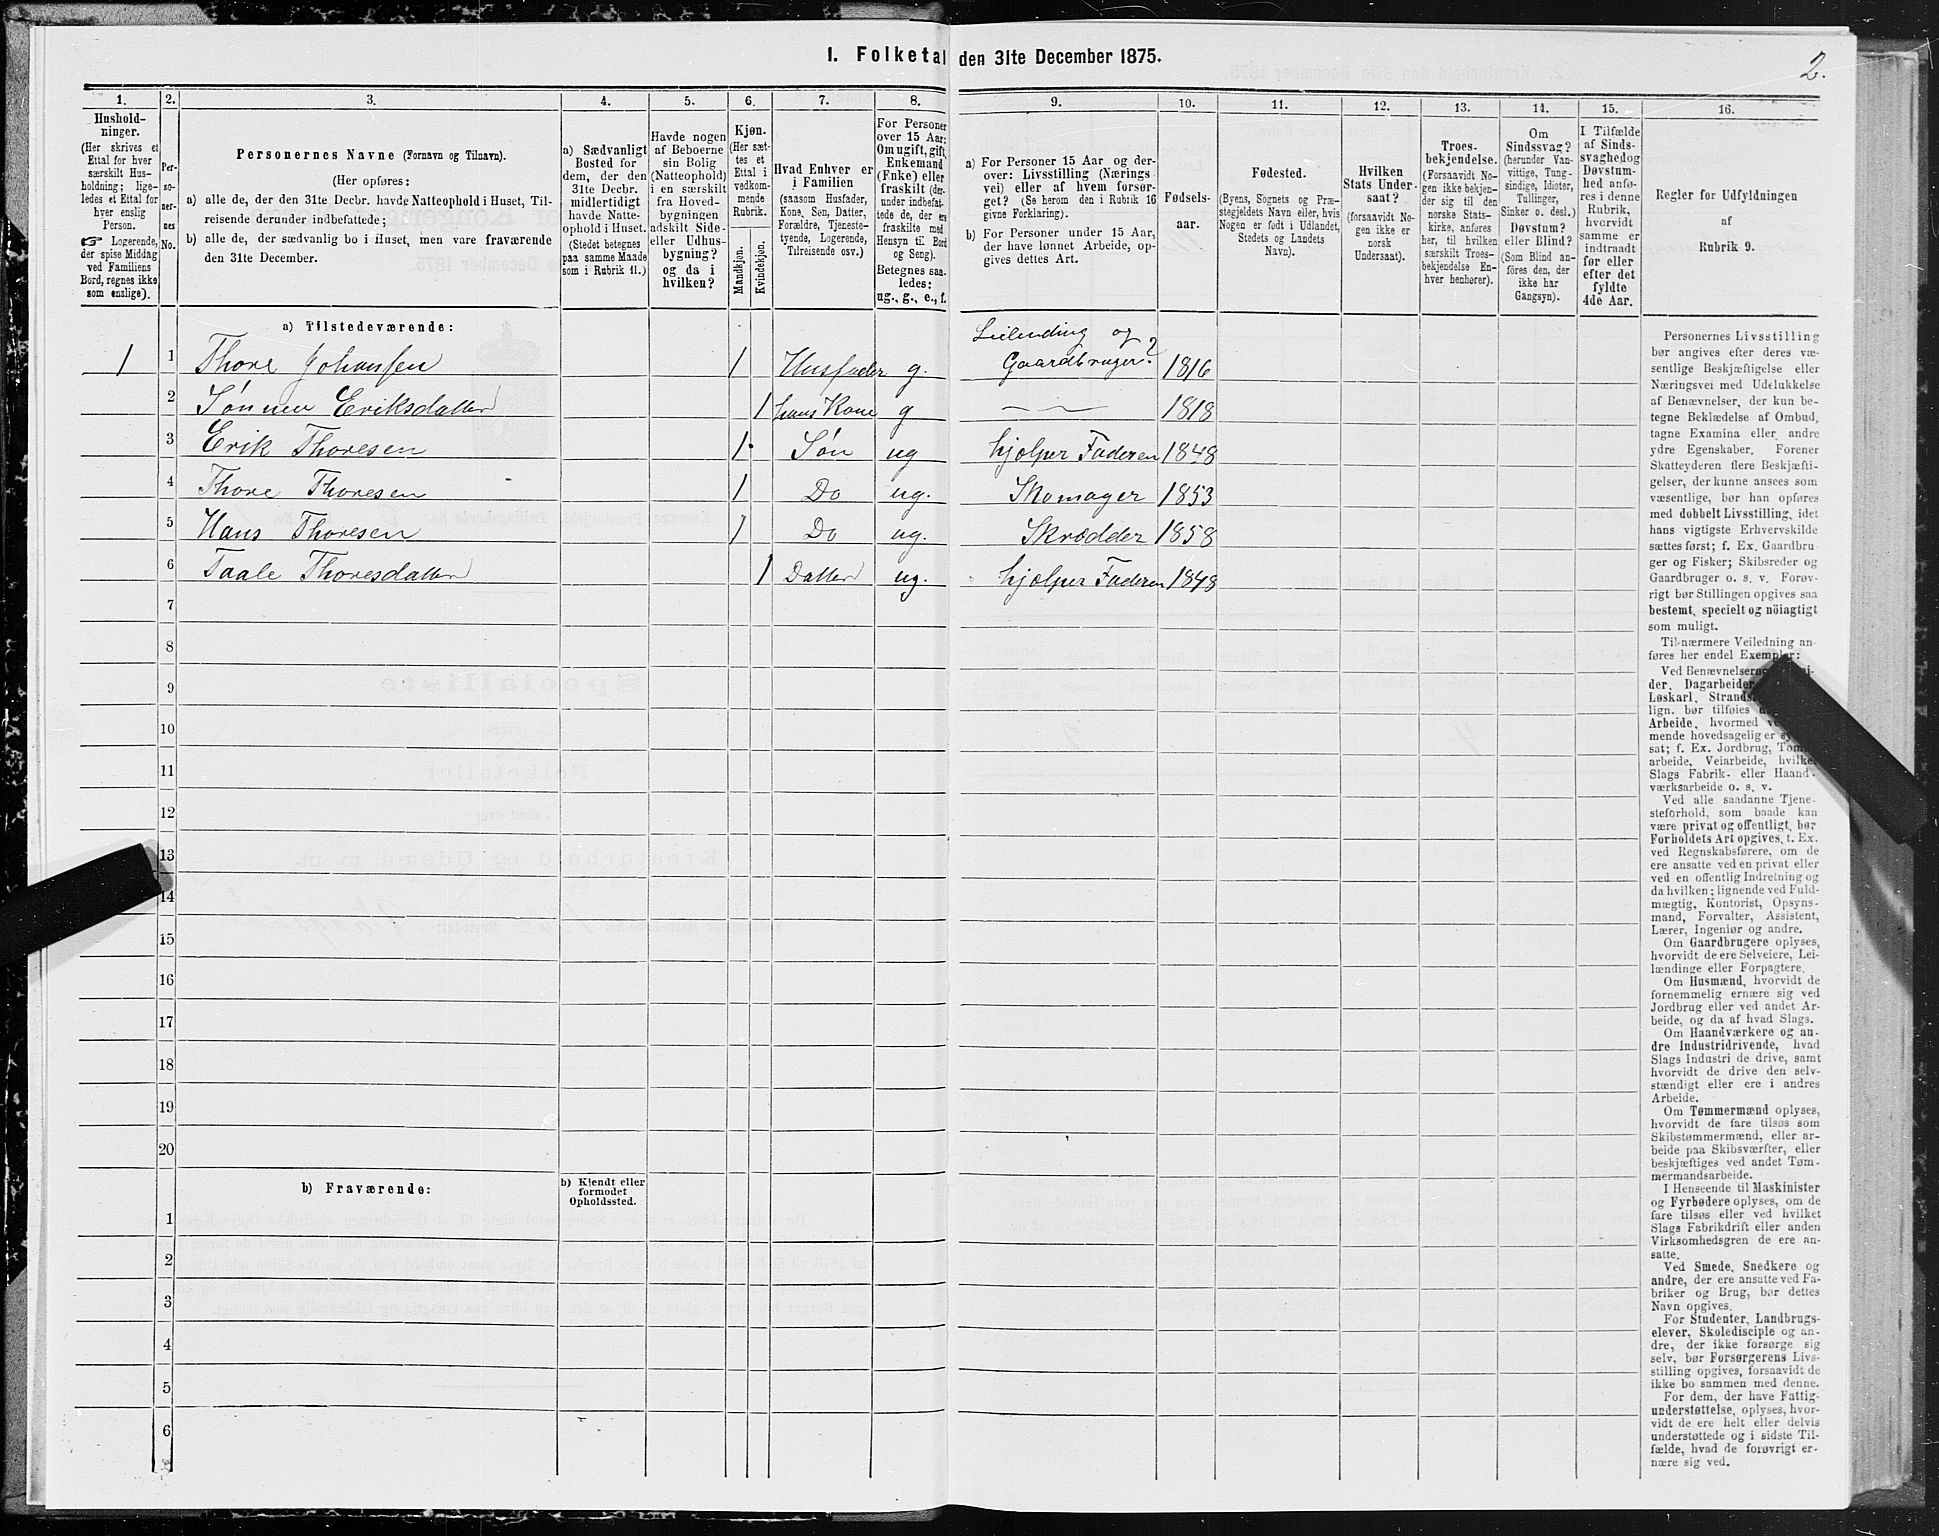 I. Folketal den 31te December 1875.
2.
1.
Hushold-
ninger.
(Her skrives et
Ettal for hver
særskilt Hus-
holdning; lige-
ledes et Ettal for
hver enslig
Person.
Logerende,
der spise Middag
ved Familiens
Bord, regnes ikke
som enslige).
2.
Per-
so-
ner-
nes
No.
3.
Personernes Navne (Fornavn og Tilnavn).
(Her opføres:
a) alle de, der den 31te Decbr. havde Natteophold i Huset, Til-
reisende derunder indbefattede;
b) alle de, der sædvanlig bo i Huset, men vare fraværende
den 31te December.
4.
a) Sædvanligt
Bosted for
dem, der den
31te Decbr.
midlertidigt
havde Natte-
ophold i Huset.
(Stedet betegnes
paa samme Maade
som i Rubrik 11.)
5.
Havde nogen
af Beboerne
sin Bolig
(Natteophold)
i en særskilt
fra Hoved-
bygningen
adskilt Side-
eller Udhus-
bygning?
og da i
hvilken?
6.
Kjøn.
(Her sæt-
tes et
Ettal i
vedkom-
mende
Rubrik.
Mandkjøn.
Kvindekjøn.
7.
Hvad Enhver er
i Familien
(saasom Husfader,
Kone, Søn, Datter,
Forældre, Tjeneste-
tyende, Logerende,
Tilreisende osv.)
8.
For Personer
over 15 Aar:
Om ugift, gift,
Enkemand
(Enke) eller
fraskilt (der-
under indbefat-
tede de, der ere
fraskilte med
Hensyn til Bord
og Seng).
Betegnes saa-
ledes:
ug., g., e., f.
9.
a) For Personer 15 Aar og der-
over: Livsstilling (Nærings-
vei) eller af hvem forsør-
get? (Se herom den i Rubrik 16
givne Forklaring).
b) For Personer under 15 Aar,
der have lønnet Arbeide, op-
gives dettes Art.
10.
Fødsels-
aar.
11.
Fødested.
(Byens, Sognets og Præ-
stegjeldets Navn eller, hvis
Nogen er født i Udlandet,
Stedets og Landets
Navn).
12.
Hvilken
Stats Under-
saat?
(forsaavidt No-
gen ikke er
norsk
Undersaat).
13.
Troes-
bekjendelse.
(Forsaavidt No-
gen ikke bekjen-
der sig til den
norske Stats-
kirke, anføres
her, til hvilken
særskilt Troes-
bekjendelse En-
hver henhører).
14.
Om
Sindssvag?
(herunder Van-
vittige, Tung-
sindige, Idioter,
Tullinger,
Sinker o. desl.)
Døvstum?
eller Blind?
(Som Blind an-
føres den, der
ikke har
Gangsyn).
15.
I Tilfælde
af Sinds-
svaghed og
Døvstum-
hed anfø-
res i denne
Rubrik,
hvorvidt
samme er
indtraadt
før eller
efter det
fyldte
4de Aar.
16.
Regler for Udfyldningen
af
Rubrik 9.
a) Tilstedeværende:
Leilending og
1 1 Thore Johansen 1 Husfader g. Gaardbruger? 1816
2 Sønnen Eriksdatter 1 hans Kone g — — 1818
3 Erik Thoresen 1. Søn ug hjælper Faderen 1848
4 Thore Thoresen 1 Do ug. Skomager 1853
5 Hans Thoresen 1 Do ug. Skrædder 1858
6 Taale Thoresdatter 1 Datter ug. hjælper Faderen 1848
7
8
9
10
11
12
13
14
15
16
17
18
19
20
b) Fraværende:
b) Kjendt eller
formodet
Opholdssted.
1
2
3
4
5
6
Personernes Livsstilling
bør angives efter deres væ-
sentlige Beskjæftigelse eller
Næringsvei med Udelukkelse
af Benævnelser, der kun be-
tegne Beklædelse af Ombud,
tagne Examina eller andre
ydre Egenskaber. Forener
Skatteyderen flere Beskjæfti-
gelser, der kunne ansees som
væsentlige, bør han opføres
med dobbelt Livsstilling, idet
hans vigtigste Erhvervskilde
sættes først; f. Ex. Gaardbru-
ger og Fisker; Skibsreder og
Gaardbruger o. s. v. Forøv-
rigt bør Stillingen opgives saa
bestemt, specielt og nöiagtigt
som muligt.
Til nærmere Veiledning an-
føres her endel Exempler:
Ved Benævnelserne
der, Dagarbeider
Løskarl,
lign. bør tilføies
Arbeide, hvormed
mende hovedsagelig er
sat; f. Ex. Jordbrug,
arbeide, Veiarbeide, hvilket
Slags Fabrik- eller Haand-
værksarbeide o. s. v.
Ved alle saadanne Tjene-
steforhold, som baade kan
være privat og offentligt, bør
Forholdets Art opgives, t. Ex.
ved Regnskabsførere, om de
ere ansatte ved en privat eller
ved en offentlig Indretning og
da hvilken; lignende ved Fuld-
mægtig, Kontorist, Opsyns-
mand, Forvalter, Assistent,
Lærer, Ingeniør og andre.
Om Gaardbrugere oplyses,
hvorvidt de ere Selveiere, Lei-
lændinge eller Forpagtere.
Om Husmænd, hvorvidt de
fornemmelig ernære sig ved
Jordbrug eller ved andet Ar-
beide, og da af hvad Slags.
Om Haandværkere og an-
dre Industridrivende, hvad
Slags Industri de drive, samt
hvorvidt de drive den selv-
stændigt eller ere i andres
Arbeide.
Om Tømmermænd oplyses,
hvorvidt de fare tilsøs som
Skibstømmermænd, eller ar-
beide paa Skibsværfter, eller
beskjæftiges ved andet Tøm-
mermandsarbeide.
I Henseende til Maskinister
og Fyrbødere oplyses, om de
fare tilsøs eller ved hvilket
Slags Fabrikdrift eller anden
Virksomhedsgren de ere an-
satte.
Ved Smede, Snedkere og
andre, der ere ansatte ved Fa-
briker og Brug, bør dettes
Navn opgives.
For Studenter, Landbrugs-
elever, Skoledisciple og an-
dre, der ikke forsørge sig
selv, bør Forsørgerens Livs-
stilling opgives, forsaavidt de
ikke bo sammen med denne.
For dem, der have Fattig-
understøttelse, oplyses, hvor-
vidt de ere helt eller delvis
understøttede og i sidste Til-
fælde, hvad de forøvrigt er-
nære sig ved.